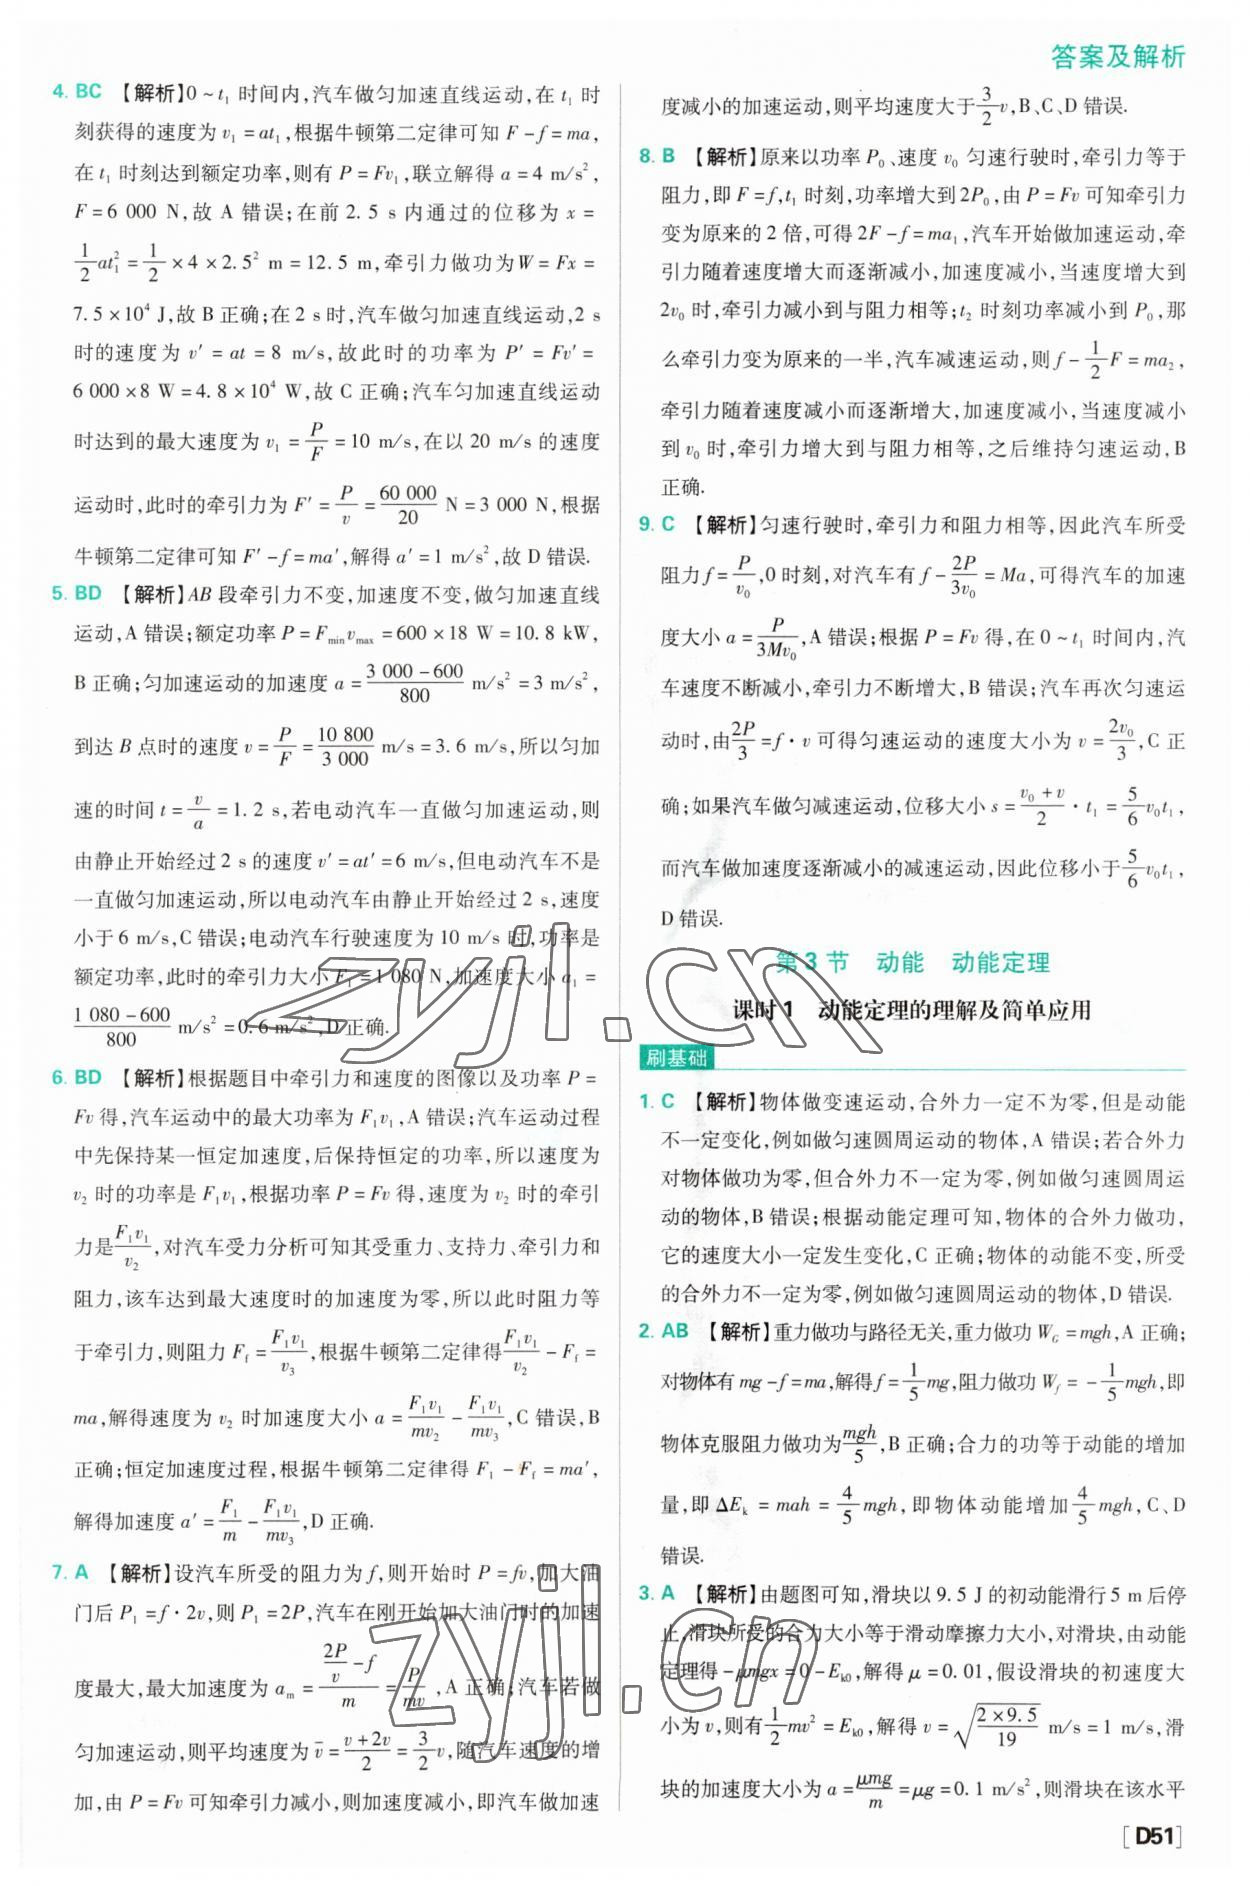 答案及解析
4. BC 【解析】0~t₁ 时间内,汽车做匀加速直线运动,在 t₁ 时
刻获得的速度为 v₁=at₁,根据牛顿第二定律可知 F-f=ma,
在 t₁ 时刻达到额定功率,则有 P=Fv₁,联立解得 a=4 m/s²,
F=6 000 N,故 A 错误;在前 2.5 s 内通过的位移为 x=
1/2 at₁²=1/2×4×2.5² m=12.5 m,牵引力做功为W=Fx=
7.5×10⁴ J,故 B 正确;在 2 s 时,汽车做匀加速直线运动,2 s
时的速度为 v′=at=8 m/s,故此时的功率为 P′=Fv′=
6 000×8 W=4.8×10⁴ W,故 C 正确;汽车匀加速直线运动
时达到的最大速度为 v₁=P/F=10 m/s,在以 20 m/s 的速度
运动时,此时的牵引力为 F′=P/v=60 000/20 N=3 000 N,根据
牛顿第二定律可知 F′-f=ma′,解得 a′=1 m/s²,故 D 错误.
5. BD 【解析】AB 段牵引力不变,加速度不变,做匀加速直线
运动,A 错误;额定功率 P=F_min v_max=600×18 W=10.8 kW,
B 正确;匀加速运动的加速度 a=(3 000-600)/800 m/s²=3 m/s²,
到达 B 点时的速度 v=P/F=10 800/3 000 m/s=3.6 m/s,所以匀加
速的时间 t=v/a=1.2 s,若电动汽车一直做匀加速运动,则
由静止开始经过 2 s 的速度 v′=at′=6 m/s,但电动汽车不是
一直做匀加速运动,所以电动汽车由静止开始经过 2 s,速度
小于 6 m/s,C 错误;电动汽车行驶速度为 10 m/s 时,功率是
额定功率,此时的牵引力大小 F₁=1 080 N,加速度大小 a₁=
(1 080-600)/800 m/s²=0.6 m/s²,D 正确.
6. BD 【解析】根据题目中牵引力和速度的图像以及功率 P=
Fv 得,汽车运动中的最大功率为 F₁v₁,A 错误;汽车运动过程
中先保持某一恒定加速度,后保持恒定的功率,所以速度为
v₂ 时的功率是 F₁v₁,根据功率 P=Fv 得,速度为 v₂ 时的牵引
力是F₁v₁/v₂,对汽车受力分析可知其受重力、支持力、牵引力和
阻力,该车达到最大速度时的加速度为零,所以此时阻力等
于牵引力,则阻力 F_f=F₁v₁/v₃,根据牛顿第二定律得F₁v₁/v₂-F_f=
ma,解得速度为 v₂ 时加速度大小 a=F₁v₁/mv₂-F₁v₁/mv₃,C 错误,B
正确;恒定加速度过程,根据牛顿第二定律得 F₁-F_f=ma′,
解得加速度 a′=F₁/m-F₁v₁/mv₃,D 正确.
7. A 【解析】设汽车所受的阻力为 f,则开始时 P=fv,加大油
门后 P₁=f·2v,则 P₁=2P,汽车在刚开始加大油门时的加速
度最大,最大加速度为 a_m=(2P/v-f)/m=P/mv,A 正确;汽车若做
匀加速运动,则平均速度为 v̄=(v+2v)/2=3/2 v,随汽车速度的增
加,由 P=Fv 可知牵引力减小,则加速度减小,即汽车做加速
度减小的加速运动,则平均速度大于3/2 v,B、C、D 错误.
8. B 【解析】原来以功率 P₀、速度 v₀ 匀速行驶时,牵引力等于
阻力,即 F=f,t₁ 时刻,功率增大到 2P₀,由 P=Fv 可知牵引力
变为原来的 2 倍,可得 2F-f=ma₁,汽车开始做加速运动,牵
引力随着速度增大而逐渐减小,加速度减小,当速度增大到
2v₀ 时,牵引力减小到与阻力相等;t₂ 时刻功率减小到 P₀,那
么牵引力变为原来的一半,汽车减速运动,则 f-1/2 F=ma₂,
牵引力随着速度减小而逐渐增大,加速度减小,当速度减小
到 v₀ 时,牵引力增大到与阻力相等,之后维持匀速运动,B
正确.
9. C 【解析】匀速行驶时,牵引力和阻力相等,因此汽车所受
阻力 f=P/v₀,0 时刻,对汽车有 f-2P/3v₀=Ma,可得汽车的加速
度大小 a=P/3Mv₀,A 错误;根据 P=Fv 得,在 0~t₁ 时间内,汽
车速度不断减小,牵引力不断增大,B 错误;汽车再次匀速运
动时,由2P/3=f·v 可得匀速运动的速度大小为 v=2v₀/3,C 正
确;如果汽车做匀减速运动,位移大小 s=(v₀+v)/2·t₁=5/6 v₀t₁,
而汽车做加速度逐渐减小的减速运动,因此位移小于5/6 v₀t₁,
D 错误.
第 3 节 动能 动能定理
课时 1 动能定理的理解及简单应用
刷基础
1. C 【解析】物体做变速运动,合外力一定不为零,但是动能
不一定变化,例如做匀速圆周运动的物体,A 错误;若合外力
对物体做功为零,但合外力不一定为零,例如做匀速圆周运
动的物体,B 错误;根据动能定理可知,物体的合外力做功,
它的速度大小一定发生变化,C 正确;物体的动能不变,所受
的合外力不一定为零,例如做匀速圆周运动的物体,D 错误.
2. AB 【解析】重力做功与路径无关,重力做功 W_G=mgh,A 正确;
对物体有 mg-f=ma,解得 f=1/5 mg,阻力做功 W_f=-1/5 mgh,即
物体克服阻力做功为mgh/5,B 正确;合力的功等于动能的增加
量,即 ΔE_k=mah=4/5 mgh,即物体动能增加4/5 mgh,C、D
错误.
3. A 【解析】由题图可知,滑块以 9.5 J 的初动能滑行 5 m 后停
止,滑块所受的合力大小等于滑动摩擦力大小,对滑块,由动能
定理得-μmgx=0-E_k0,解得 μ=0.01,假设滑块的初速度大
小为 v,则有1/2 mv²=E_k0,解得 v=√(2×9.5/19) m/s=1 m/s,滑
块的加速度大小为 a=μmg/m=μg=0.1 m/s²,则滑块在该水平
[D51]
zyjl.cn
zyjl.cn